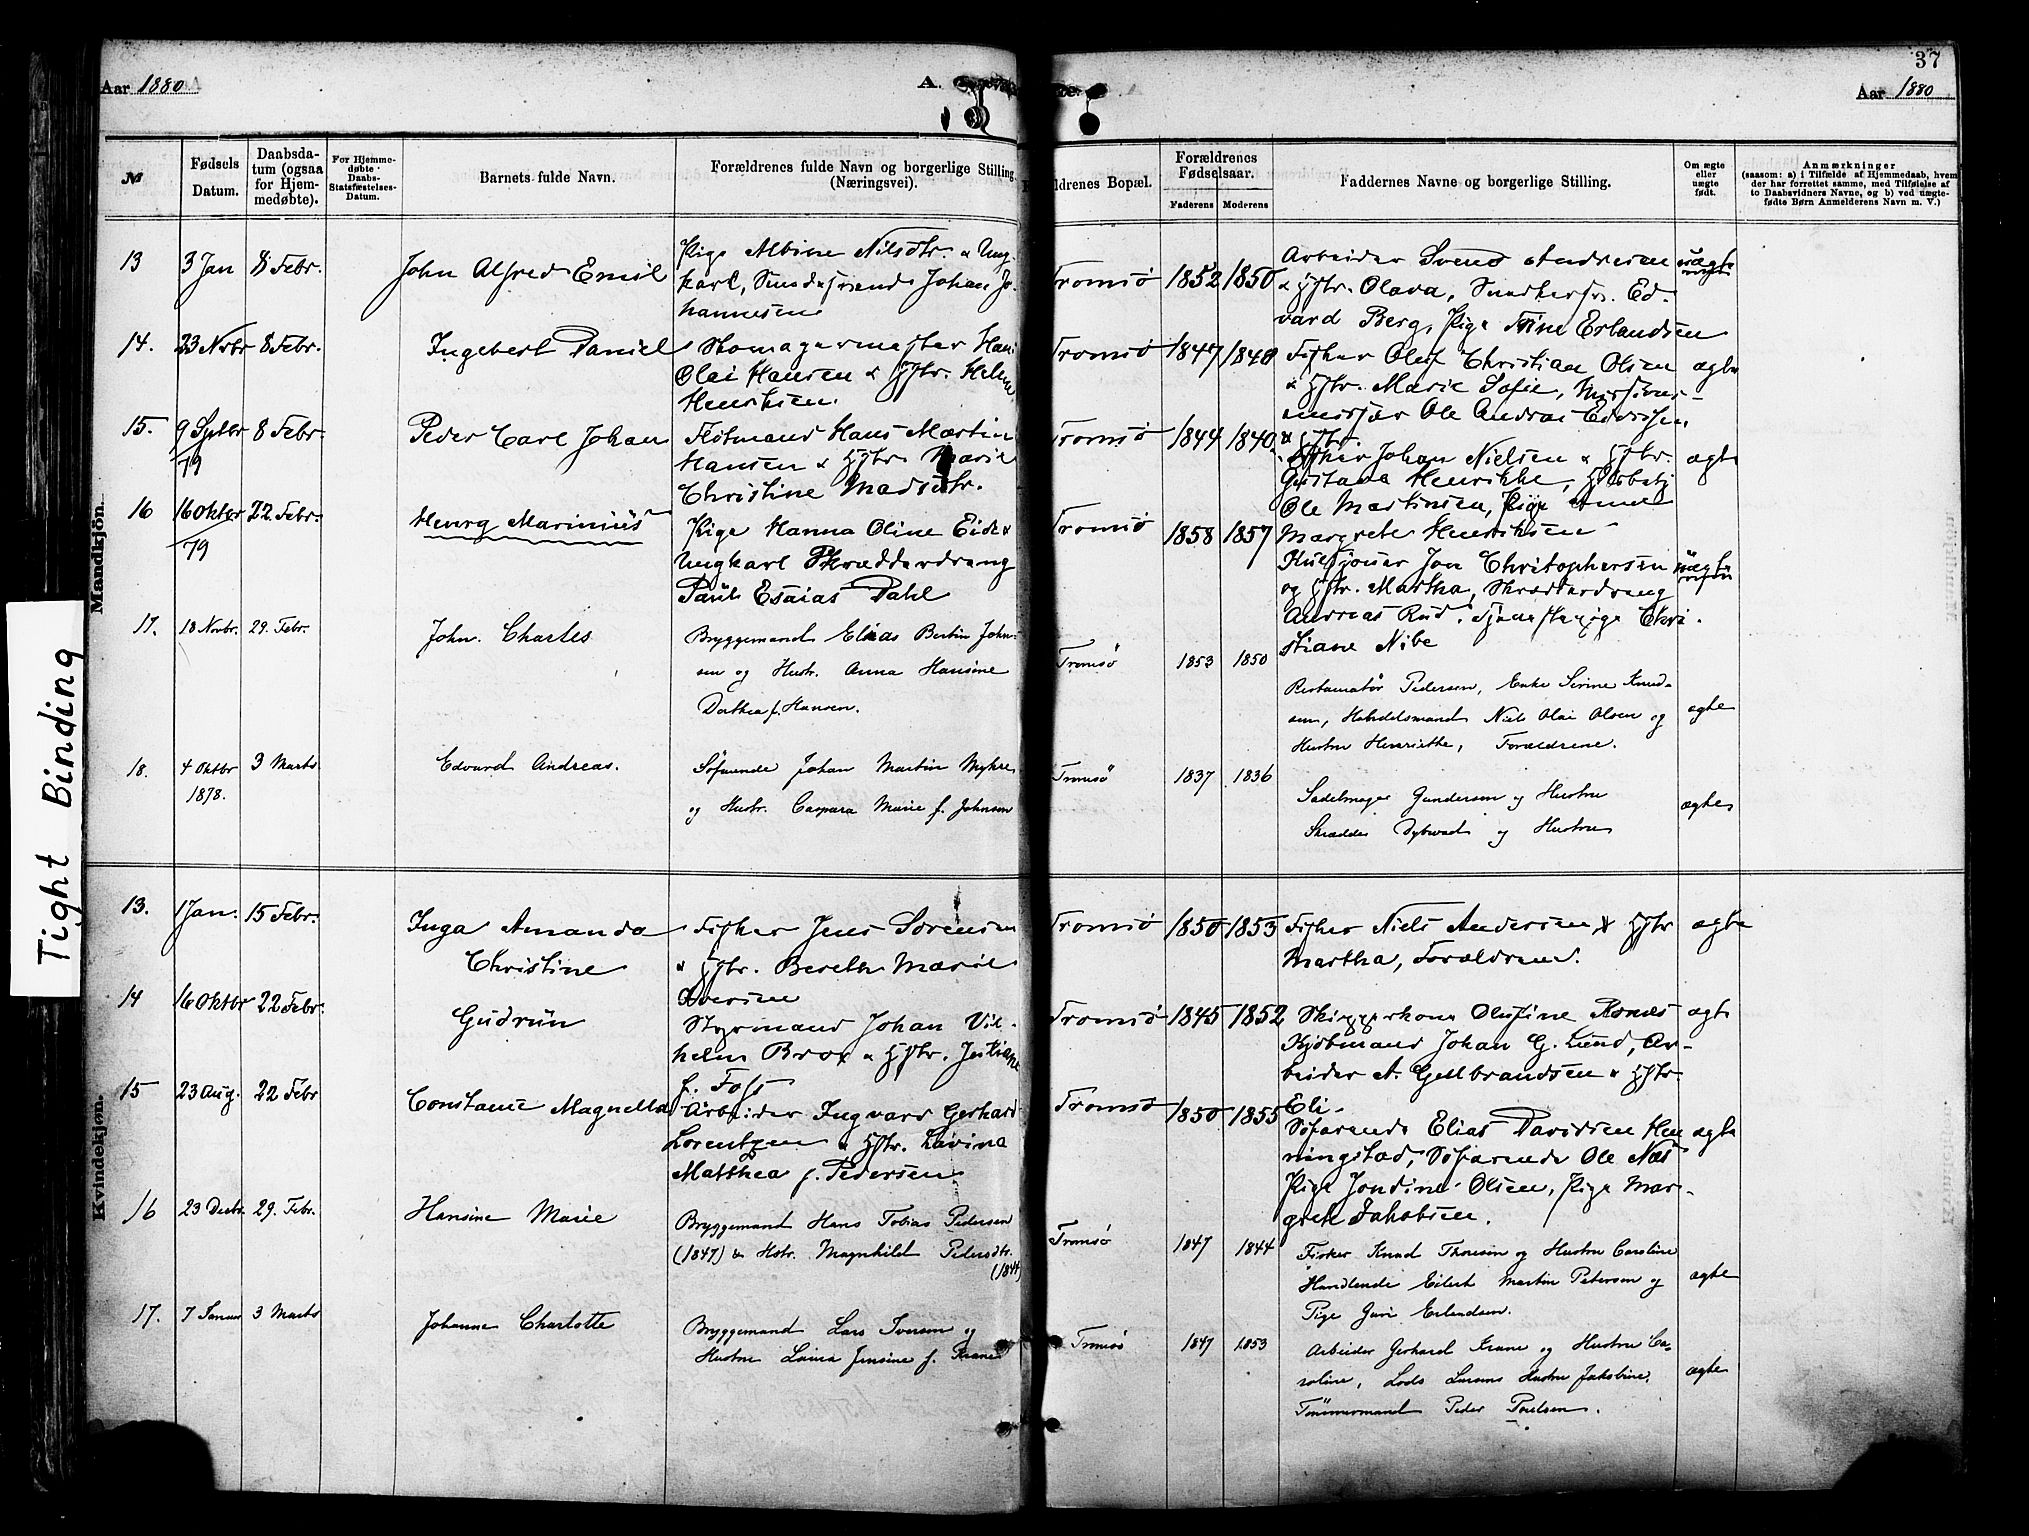 37
Aar 1880
A.
Aar 1880
№
Fødsels Datum.
Daabsdatum (ogsaa for Hjemmedøbte).
For Hjemmedøbte Daabs-Statsfæstelses-Datum.
Barnets fulde Navn.
Forældrenes fulde Navn og borgerlige Stilling
(Næringsvei).
ldrenes Bopæl.
Forældrenes Fødselsaar.
Faderens
Moderens
Faddernes Navne og borgerlige Stilling.
Om ægte eller uægte født.
Anmærkninger
(saasom: a) i Tilfælde af Hjemmedaab, hvem
der har forrettet samme, med Tilføielse af
to Daabsvidners Navne, og b) ved uægte-
fødte Børn Anmelderens Navn m. V.)
Mandkjön.
13 3 Jan 8 Febr. John Alfred Emil
Pige Albine Nilsdtr. & Ung
karl, Smedsvend Johan Jo-
hannesen
Tromsö 1852 1850
Arbeider Svend Andresen
& Hstr. Olava, Ed-
vard Berg, Pige Trine Erlandsen
uægte
14. 23 Novbr 8 Febr. Ingebert Daniel
Skomagermester Hans
Olai Hansen & Hstr. Helene
Henriksen.
Tromsö 1847 1840
Fisker Oluf Christian Olsen
& Hstr. Marie Sofie,
Ole Andreas
& Hstr.
ægte
15. 9 Sptbr 79 8 Febr. Peder Carl Johan
Hans Martin
Hansen & Hstr. Marie
Christine Madsdtr.
Tromsö 1844 1840
Fisker Johan Nielsen & Hstr.
Gustava Henrikke,
Ole Martinsen, Pige Anne
Margrete Henriksen
ægte
16 16 Oktbr 79 22 Febr. Henry Marinius
Pige Hanna Oline Eide &
Ungkarl Skrædderdreng
Paul Esaias Dahl
Tromsö 1858 1857
Jon Christophersen
og Hstr. Martha, Skrædderdreng
Andreas Rud, Tjenestepige Chri-
stiane Nibe
uægte
17. 18 Novbr. 29. Febr. John. Charles
Bryggemand Elias Bertin John-
sen og Hustr. Anna Hansine
Dorthea f. Hansen.
Tromsö 1853 1850
Restauratör Pedersen, Enke Serine Knud-
sen, Handelsmand Niels Olai Olsen og
Hustru Henriethe, Forældrene.
ægte
18. 4 Oktbr 1878. 3 Marts Edvard Andreas.
Söfarende Johan Martin Myhre
og Hustr. Caspara Marie f. Johnsen
Tromsö 1837 1836
Sadelmager Gundersen og Hustru
Skrædder Dybwad og Hustru
ægte
Kvindekjön.
13. 1 Jan. 15 Febr. Inga Amanda
Christine
Fisker Jens Sörensen
& Hstr. Berethe Marie
Iversen
Tromsö 1850 1853
Fisker Niels Andersen & Hstr
Martha, Forældrene.
ægte
14 16 Oktbr 22 Febr. Gudrun
Styrmand Johan Vil-
helm Brox & Hstr. Justiane
f. Foss
Tromsö 1845 1852
Skipperkone Olufine Asnes
Kjöbmand Johan G. Lund, Ar-
beider A. Gulbrandsen & Hstr.
Eli.
ægte
15 23 Aug. 22 Febr Constance Magnella
Arbeider Ingvard Gerhard
Lorentzen & Hstr. Lavina
Matthea f. Pedersen
Tromsö 1850 1855
Söfarende Elias Davidsen Hen
ningstad, Söfarende Ole Næs
Pige Jondine Olsen, Pige Mar-
grete Jakobsen.
ægte
16 23 Decbr. 29. Febr. Hansine Marie
Bryggemand Hans Tobias Pedersen
(1847) & Hstr. Magnhild Pedersdtr.
(1844)
Tromsö 1847 1844
Fisker Knud Thoresen og Hustru Caroline
Handlende Eilert Martin Petersen og
Pige Guri Erlandsen.
ægte
17. 7 Januar 3 Marts Johanna Charlotte
Bryggemand Lars Iversen og
Hustru Lovisa Jensine f. Krane
Tromsö 1847 1853
Arbeider Gerhard Krane og Hustru Ca-
roline, Lods Larsens Hustru Jakobine,
Tömmermand Peder Poulsen.
ægte
Tight Binding